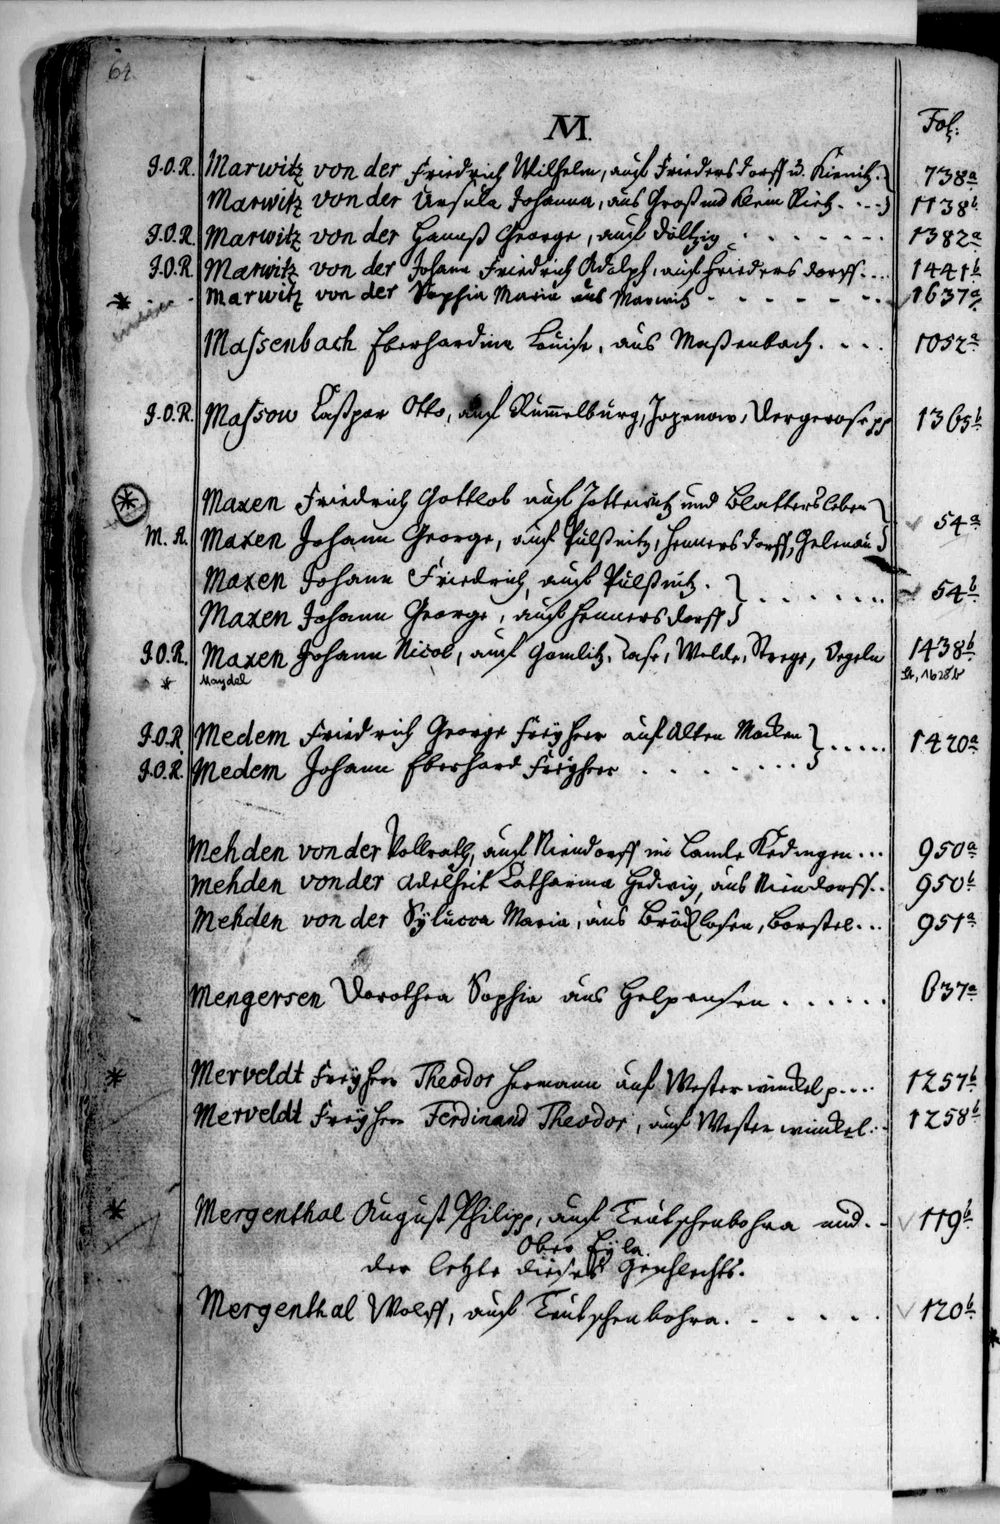 64.
M.
Fol:
J.O.R. Marwitz von der Friedrich Wilhelm, auf Friedersdorff u. Kienitz. } 738a
Marwitz von der Ursula Johanna, aus Groß und Klein Rietz. } 1138b
J.O.R. Marwitz von der Hannß George, auf Döltzig 1382a
J.O.R. Marwitz von der Johann Friedrich Adolph, auf Friedersdorff. 1441b
* Marwitz von der Sophia Maria aus Marwitz 1637a
Massenbach Eberhardine Louise, aus Maßenbach. 1052a
J.O.R. Massow Caspar Otto, auf Rum̄elburg, 1365b
* Maxen Friedrich Gottlob auf und Blattersleben }
M. A. Maxen Johann George, auf Pulßnitz, Hennersdorff, Gelenau } 54a
Maxen Johann Friedrich, auf Pulßnitz. }
Maxen Johann George, auf Hennersdorff } 54b
J.O.R. Maxen Johann Nicol, auf Gomlitz, 1438b
* Maydel
J.O.R. Medem Friedrich George Freyherr auf Alten Mocken } 1420a
J.O.R. Medem Johann Eberhard Freyherr }
Mehden von der Vollrath, auf Niendorff im Lande Kedingen 950a
Mehden von der Adelheit Catharina Hedwig, aus Niendorff. 950b
Mehden von der Maria, aus Borstel. 951a
Mengersen Dorothea Sophia aus Helpensen 637a
* Merveldt Freyherr Theodor Hermann auf Westerwinckel p. 1257b
Merveldt Freyherr Ferdinand Theodor, auf Westerwinckel. 1258b
* Mergenthal August Philipp, auf Teutschenbohra und 119b
Ober Eyla.
der letzte dieses Geschlechts.
Mergenthal Wolff, auf Teutschenbohra. 120b